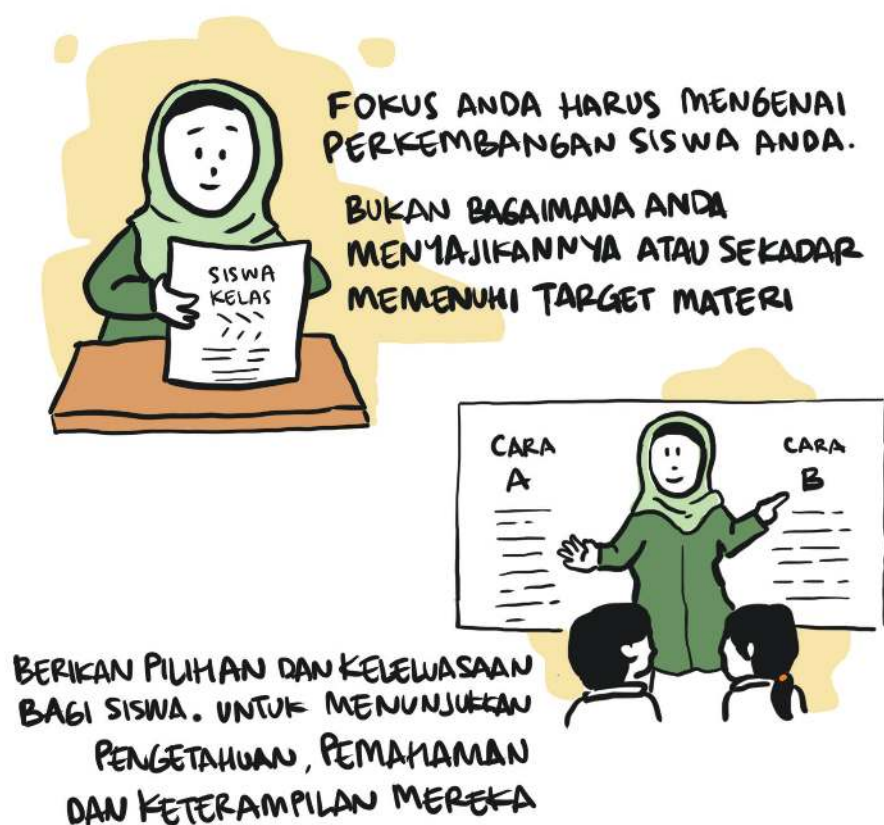 FOKUS ANDA HARUS MENGENAI
PERKEMBANGAN SISWA ANDA.
BUKAN BAGAIMANA ANDA
MENYAJIKANNYA ATAU SEKADAR
MEMENUHI TARGET MATERI
SISWA
KELAS
CARA
A
CARA
B
BERIKAN PILIHAN DAN KELELUASAAN
BAGI SISWA. UNTUK MENUNJUKKAN
PENGETAHUAN, PEMAHAMAN
DAN KETERAMPILAN MEREKA